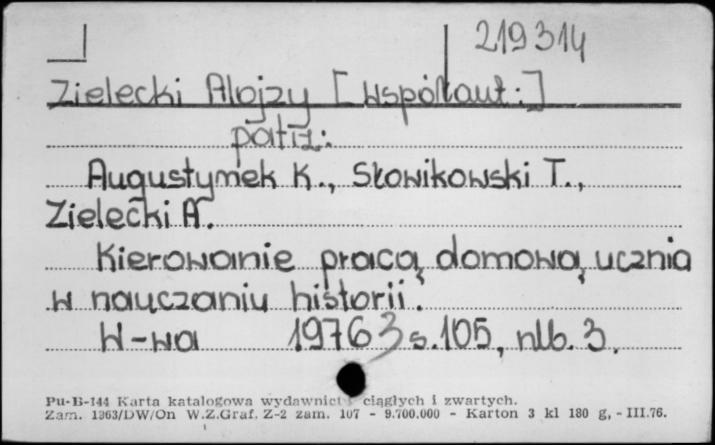 219314
Zielecki Alojzy [współaut.:]
patrz:
Augustymek K., Słowikowski T.,
Zielecki A.
Kierowanie pracą domową ucznia
w nauczaniu historii.
W-wa 1976 s. 105, nlb. 3.
Pu-B-144 Karta katalogowa wydawnict ciągłych i zwartych.
Zam. 1363/DW/On W.Z.Graf. Z-2 zam. 107 - 9.700.000 - Karton 3 kl 180 g, - III.76.